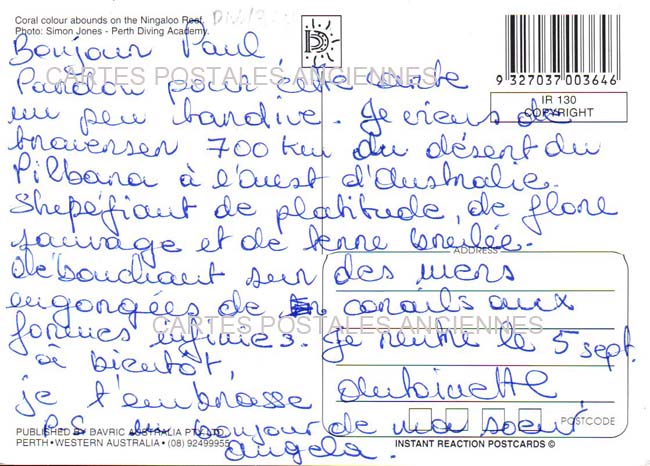 Coral colour abounds on the Ningaloo Reef.
Photo: Simon Jones - Perth Diving Academy.
9 327037 003646
IR 130
COPYRIGHT
CARTES POSTALES ANCIENNES
Bonjour Paul
Pardon pour cette carte
un peu tardive. Je viens de
traverser 700 km du désert du
Pilbara à l'Ouest d'Australie.
Stupéfiant de platitude, de flore
sauvage et de terre brulée.
ADDRESS
débouchant sur des mers
engorgées de corails aux
CARTES POSTALES ANCIENNES
formes infinies. Je rentre le 5 sept.
à bientôt,
je t'embrasse Antoinette
P.S un bonjour de ma soeur
Angela.
POSTCODE
PUBLISHED BY DAVRIC AUSTRALIA PTY LTD
PERTH • WESTERN AUSTRALIA • (08) 92499955
INSTANT REACTION POSTCARDS ©